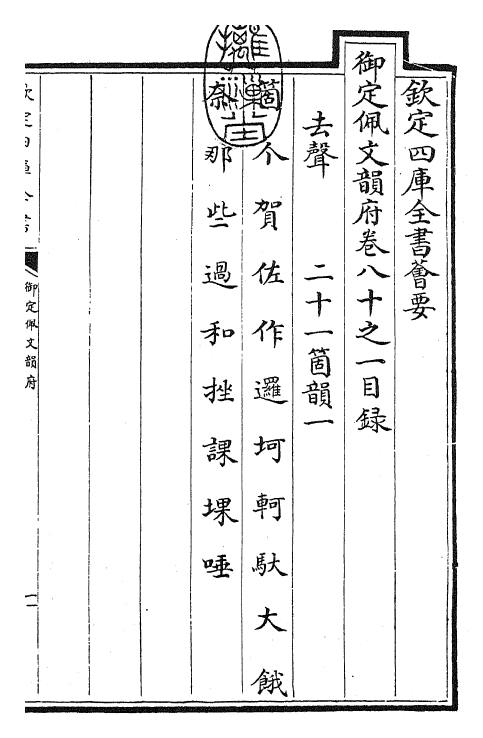 欽定四庫全書薈要
御定佩文韻府卷八十之一目録
去聲　二十一箇韻一
箇个賀佐作邏坷軻馱大餓
奈那些過和挫課堁唾
御定佩文韻府